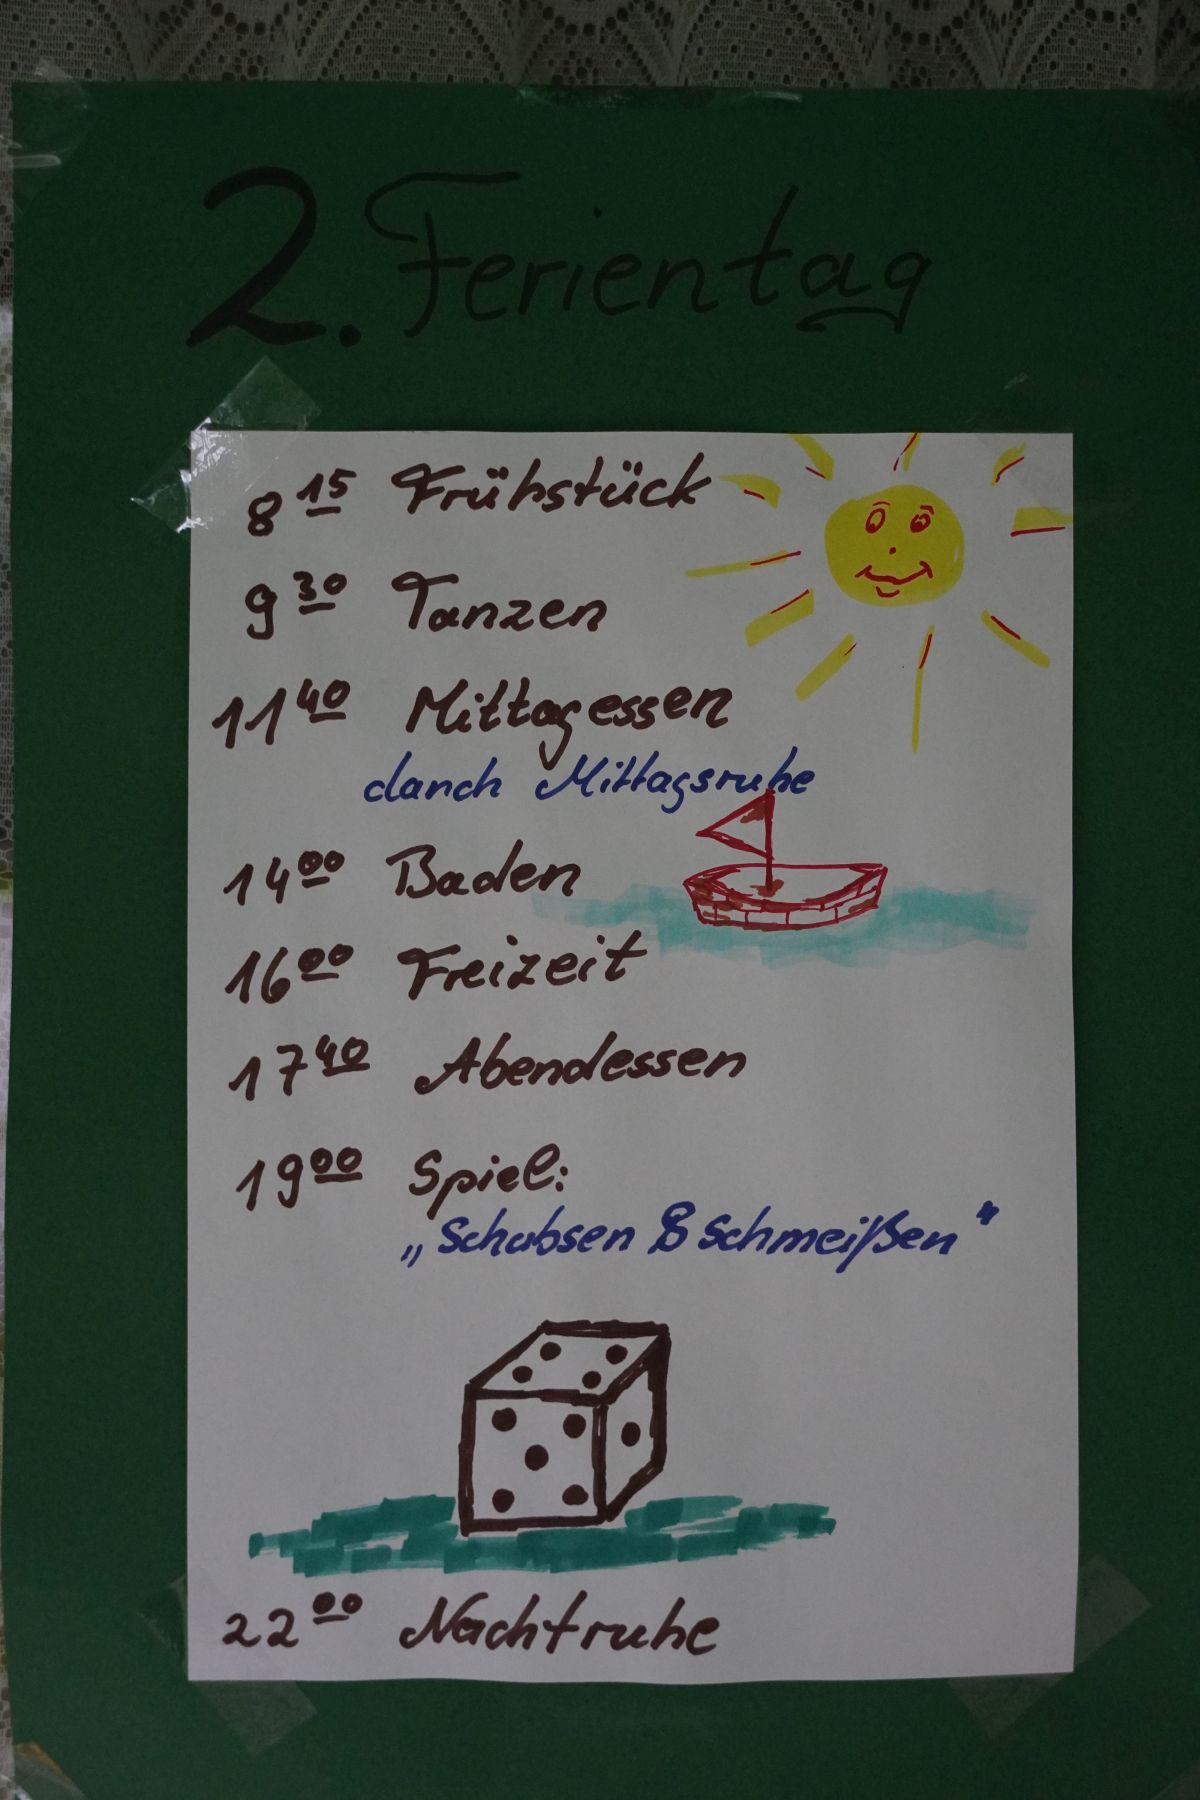 2. Ferientag
8 15 Frühstück
9 30 Tanzen
11 40 Mittagessen
danch Mittagsruhe
14 00 Baden
16 00 Freizeit
17 40 Abendessen
19 00 Spiel:
„Schubsen & Schmeißen“
22 00 Nachtruhe